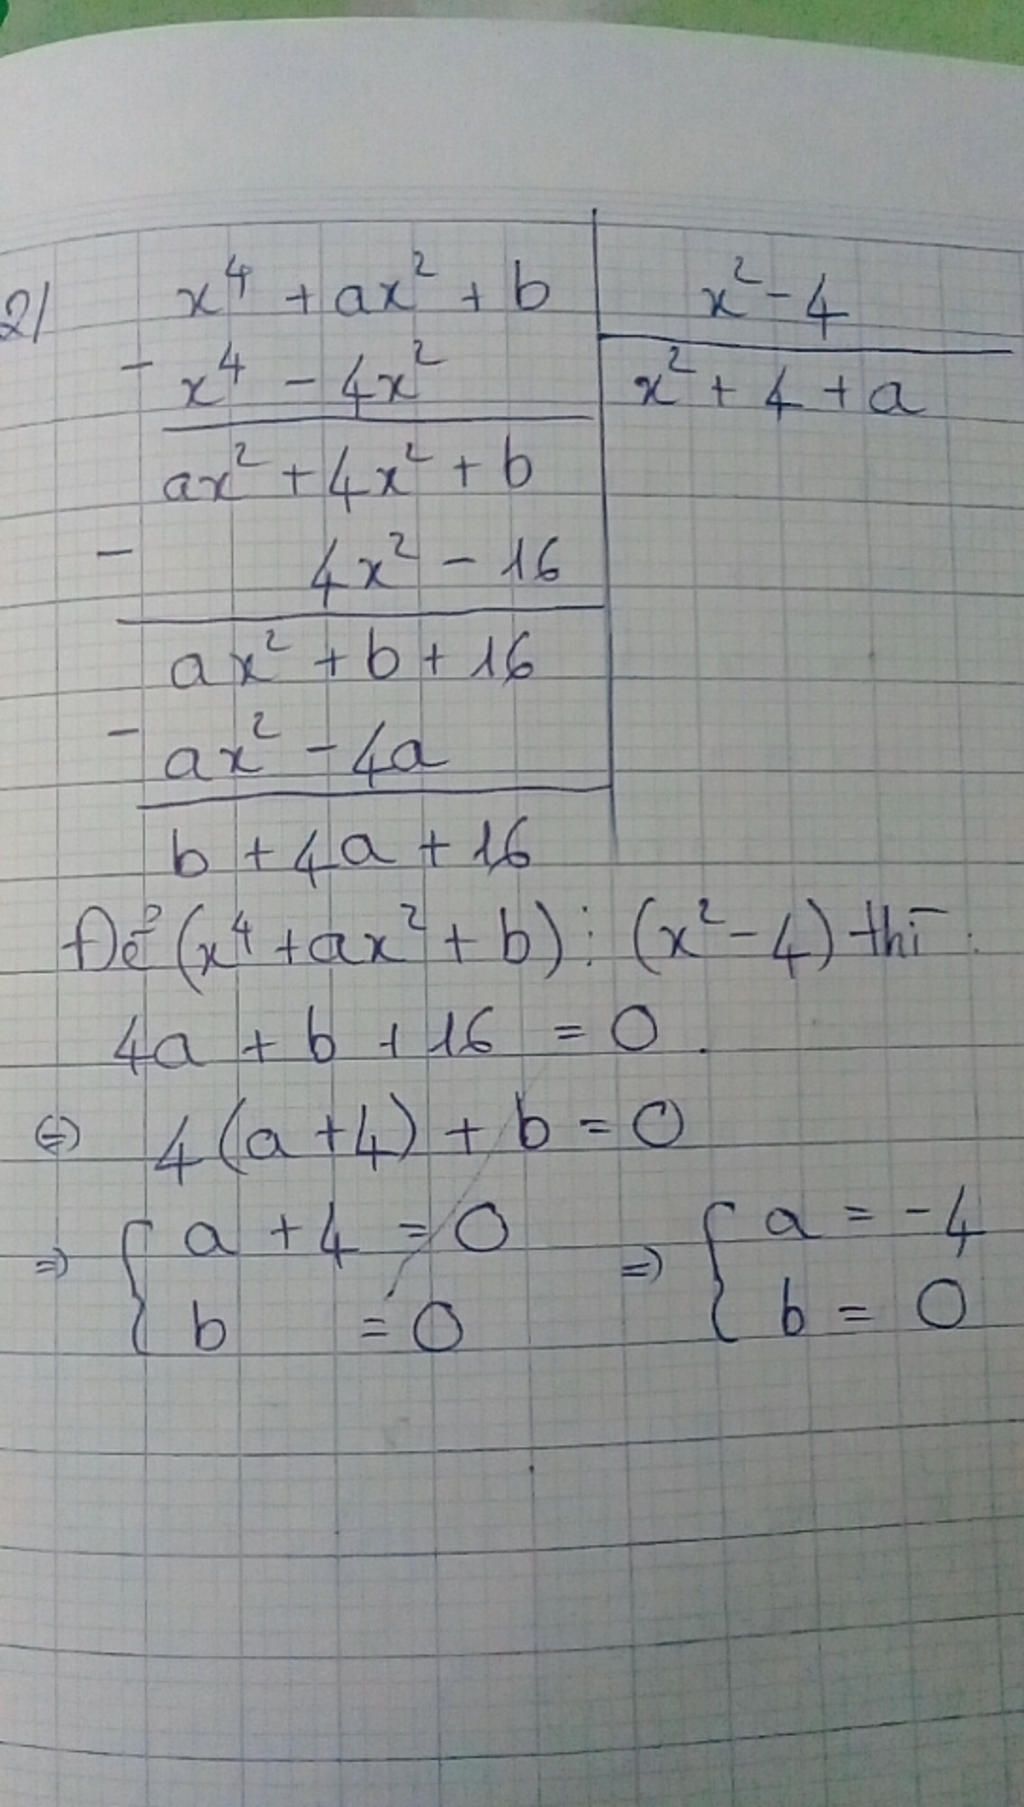 2/ x⁴ + ax² + b | x² - 4
- x⁴ - 4x² | x² + 4 + a
ax² + 4x² + b
- 4x² - 16
ax² + b + 16
- ax² - 4a
b + 4a + 16
Để (x⁴ + ax² + b) ⋮ (x² - 4) thì :
4a + b + 16 = 0.
⇔ 4(a + 4) + b = 0
⇒ { a + 4 = 0 ⇒ { a = -4
b = 0 b = 0